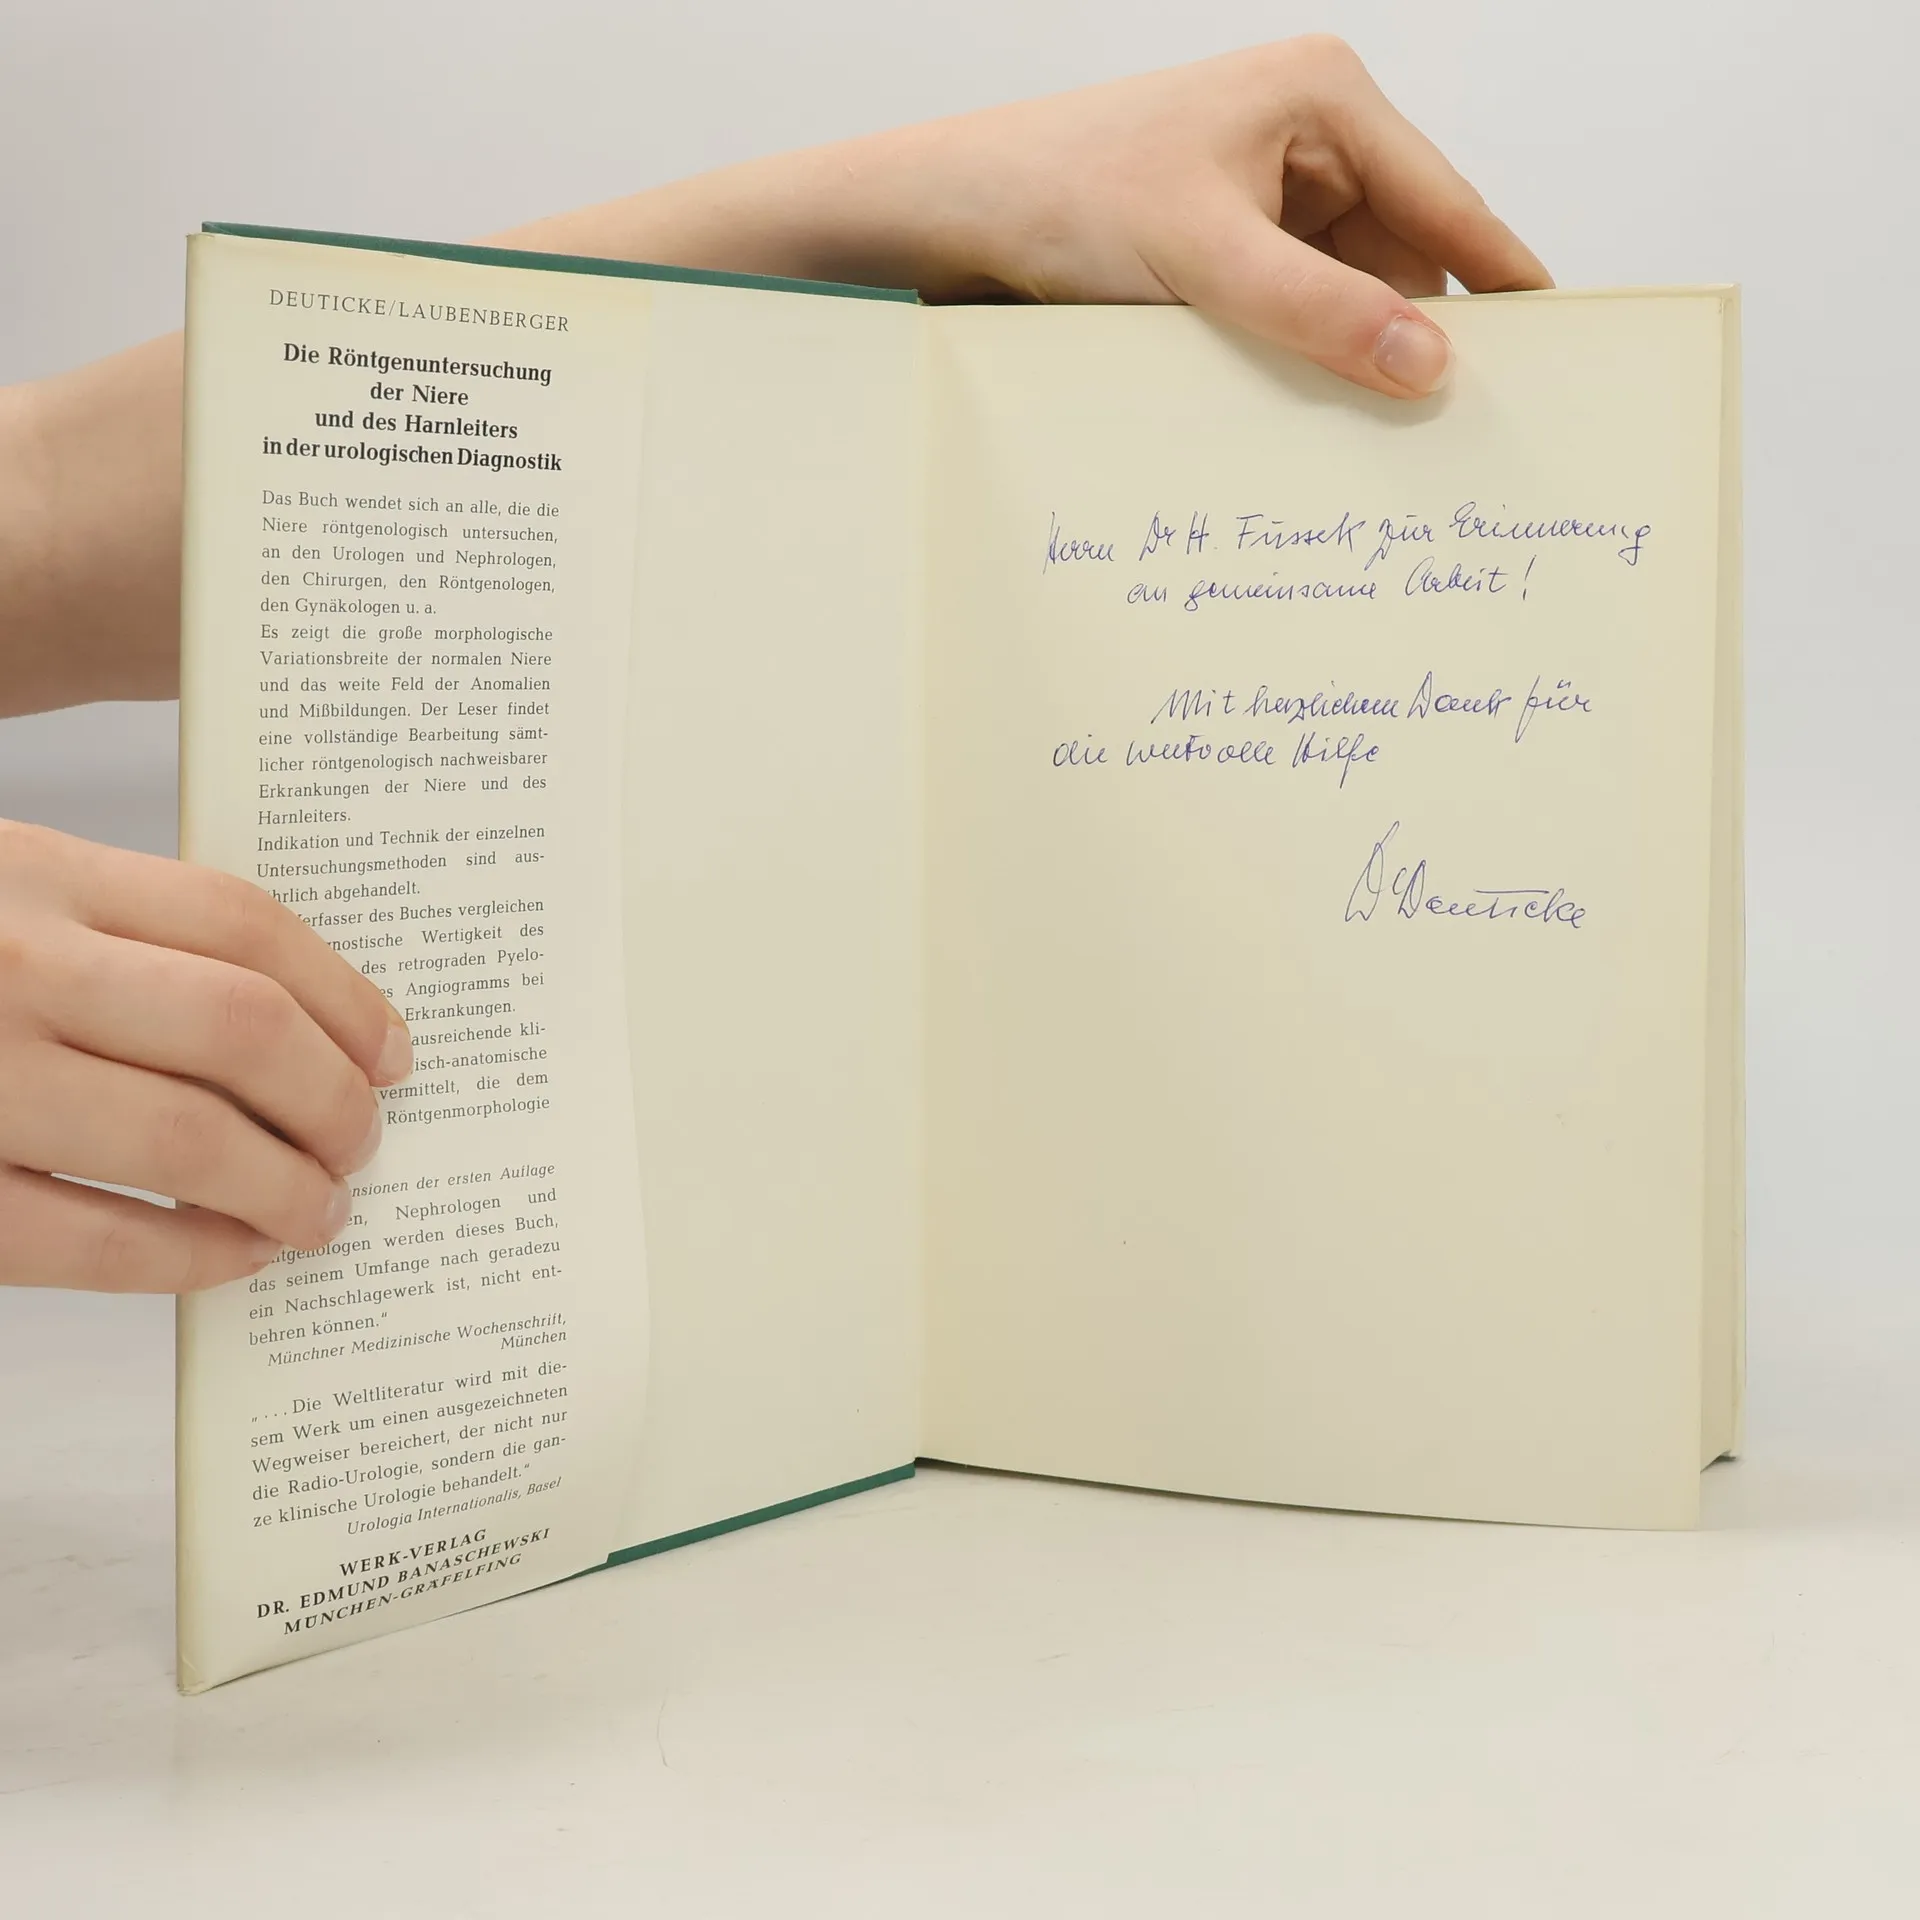 DEUTICKE/LAUBENBERGER
Die Röntgenuntersuchung
der Niere
und des Harnleiters
in der urologischen Diagnostik
Das Buch wendet sich an alle, die die
Niere röntgenologisch untersuchen,
an den Urologen und Nephrologen,
den Chirurgen, den Röntgenologen,
den Gynäkologen u. a.
Es zeigt die große morphologische
Variationsbreite der normalen Niere
und das weite Feld der Anomalien
und Mißbildungen. Der Leser findet
eine vollständige Bearbeitung sämt-
licher röntgenologisch nachweisbarer
Erkrankungen der Niere und des
Harnleiters.
Indikation und Technik der einzelnen
Untersuchungsmethoden sind aus-
hrlich abgehandelt.
erfasser des Buches vergleichen
nostische Wertigkeit des
des retrograden Pyelo-
es Angiogramms bei
Erkrankungen.
ausreichende kli-
isch-anatomische
vermittelt, die dem
Röntgenmorphologie
nsionen der ersten Auflage
en, Nephrologen und
ntgenologen werden dieses Buch,
das seinem Umfange nach geradezu
ein Nachschlagewerk ist, nicht ent-
behren können.“
Münchner Medizinische Wochenschrift,
München
„...Die Weltliteratur wird mit die-
sem Werk um einen ausgezeichneten
Wegweiser bereichert, der nicht nur
die Radio-Urologie, sondern die gan-
ze klinische Urologie behandelt.“
Urologia Internationalis, Basel
WERK-VERLAG
DR. EDMUND BANASCHEWSKI
MÜNCHEN-GRÄFELFING
Herrn Dr H. Füssek zur Erinnerung
an gemeinsame Arbeit!
Mit herzlichem Dank für
die wertvolle Hilfe
Dr Deuticke